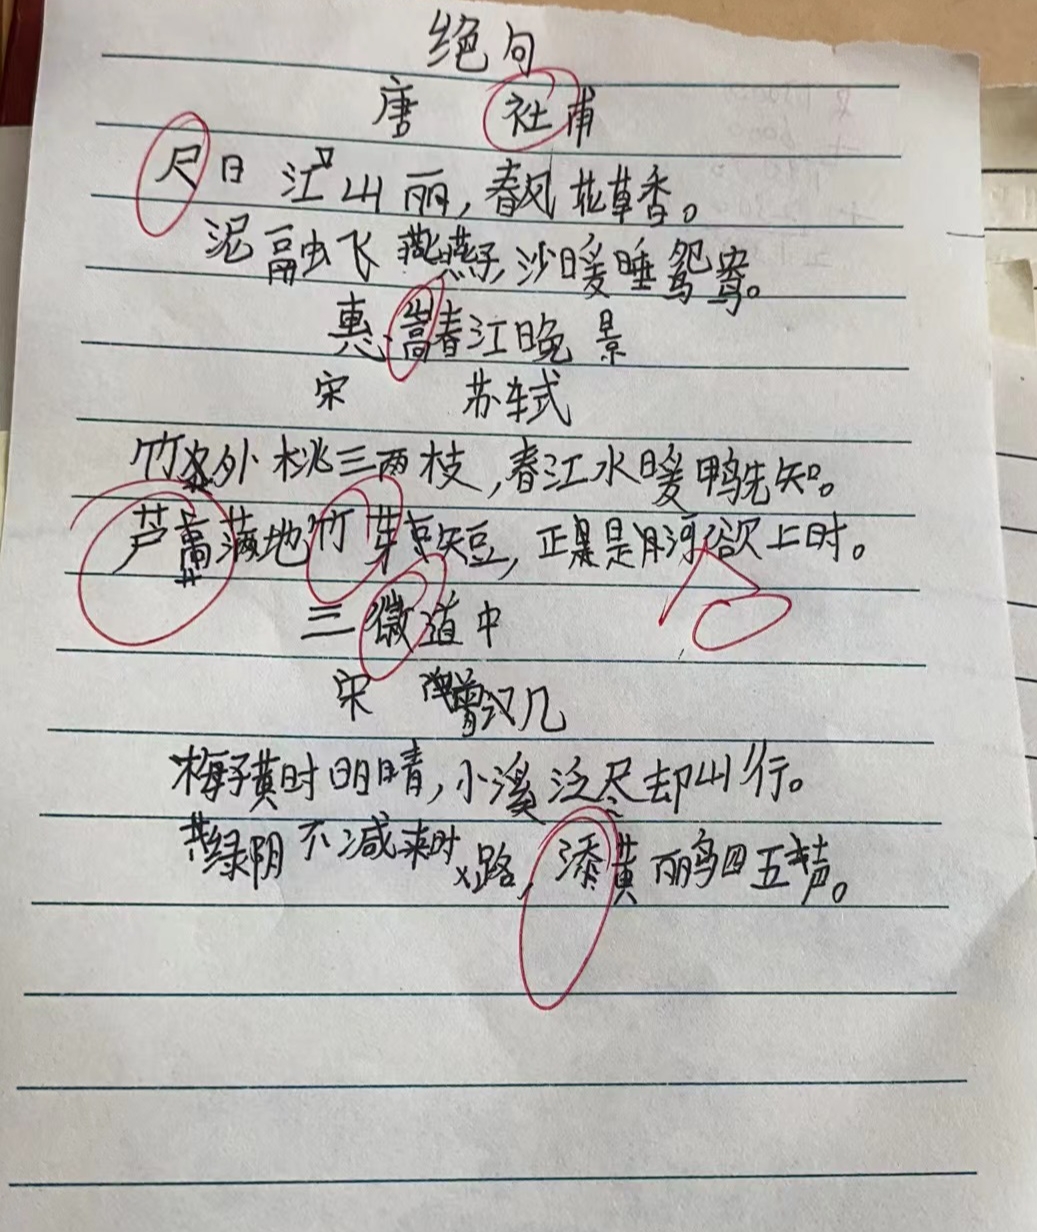 绝句
唐 社甫
尺日江山丽，春风花草香。
泥融飞燕子，沙暖睡鸳鸯。
惠嵩春江晚景
宋 苏轼
竹外桃三两枝，春江水暖鸭先知。
芦蒿满地竹芽短，正是是河欲上时。
三微道中
宋 曾几
梅子黄时日晴，小溪泛尽却山行。
绿阴不减来时路，添黄丽鸟四五声。